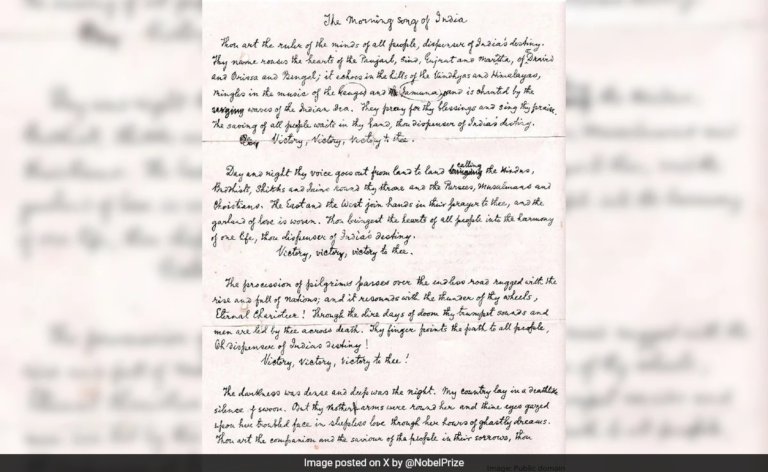 The Morning Song of India
Thou art the ruler of the minds of all people, dispenser of India's destiny.
Thy name rouses the hearts of the Panjarb, Sind, Gujrat and Maratha, of Dravid
and Orissa and Bengal; it echoes in the hills of the Vindhyas and Himalayas,
mingles in the music of the Ganges and Jamuna, and is chanted by the
waves of the Indian Sea. They pray for thy blessings and sing thy praise.
The saving of all people waits in thy hand, thou dispenser of India's destiny.
Victory, Victory, Victory to thee.
Day and night thy voice goes out from land to land calling the Hindus,
Buddhists, Shikhs and Jains round thy throne and the Parsees, Musulmans and
Christians. The East and the West join hands in their prayer to thee, and the
garland of love is woven. Thou bringest the hearts of all people into the harmony
of one life, thou dispenser of India's destiny.
Victory, victory, victory to thee.
The procession of pilgrims passes over the endless road rugged with the
rise and fall of nations; and it resounds with the thunder of thy wheels,
Eternal Charioteer! Through the dire days of doom thy trumpet sounds and
men are led by thee across death. Thy finger points the path to all people,
Oh dispenser of India's destiny!
Victory, Victory, Victory to thee!
The darkness was dense and deep was the night. My country lay in a deathlike
silence of swoon. But thy mother arms were round her and thine eyes gazed
upon her troubled face in sleepless love through her hours of ghastly dreams.
Thou art the companion and the saviour of the people in their sorrows, thou
Image posted on X by @NobelPrize
Image: Public domain